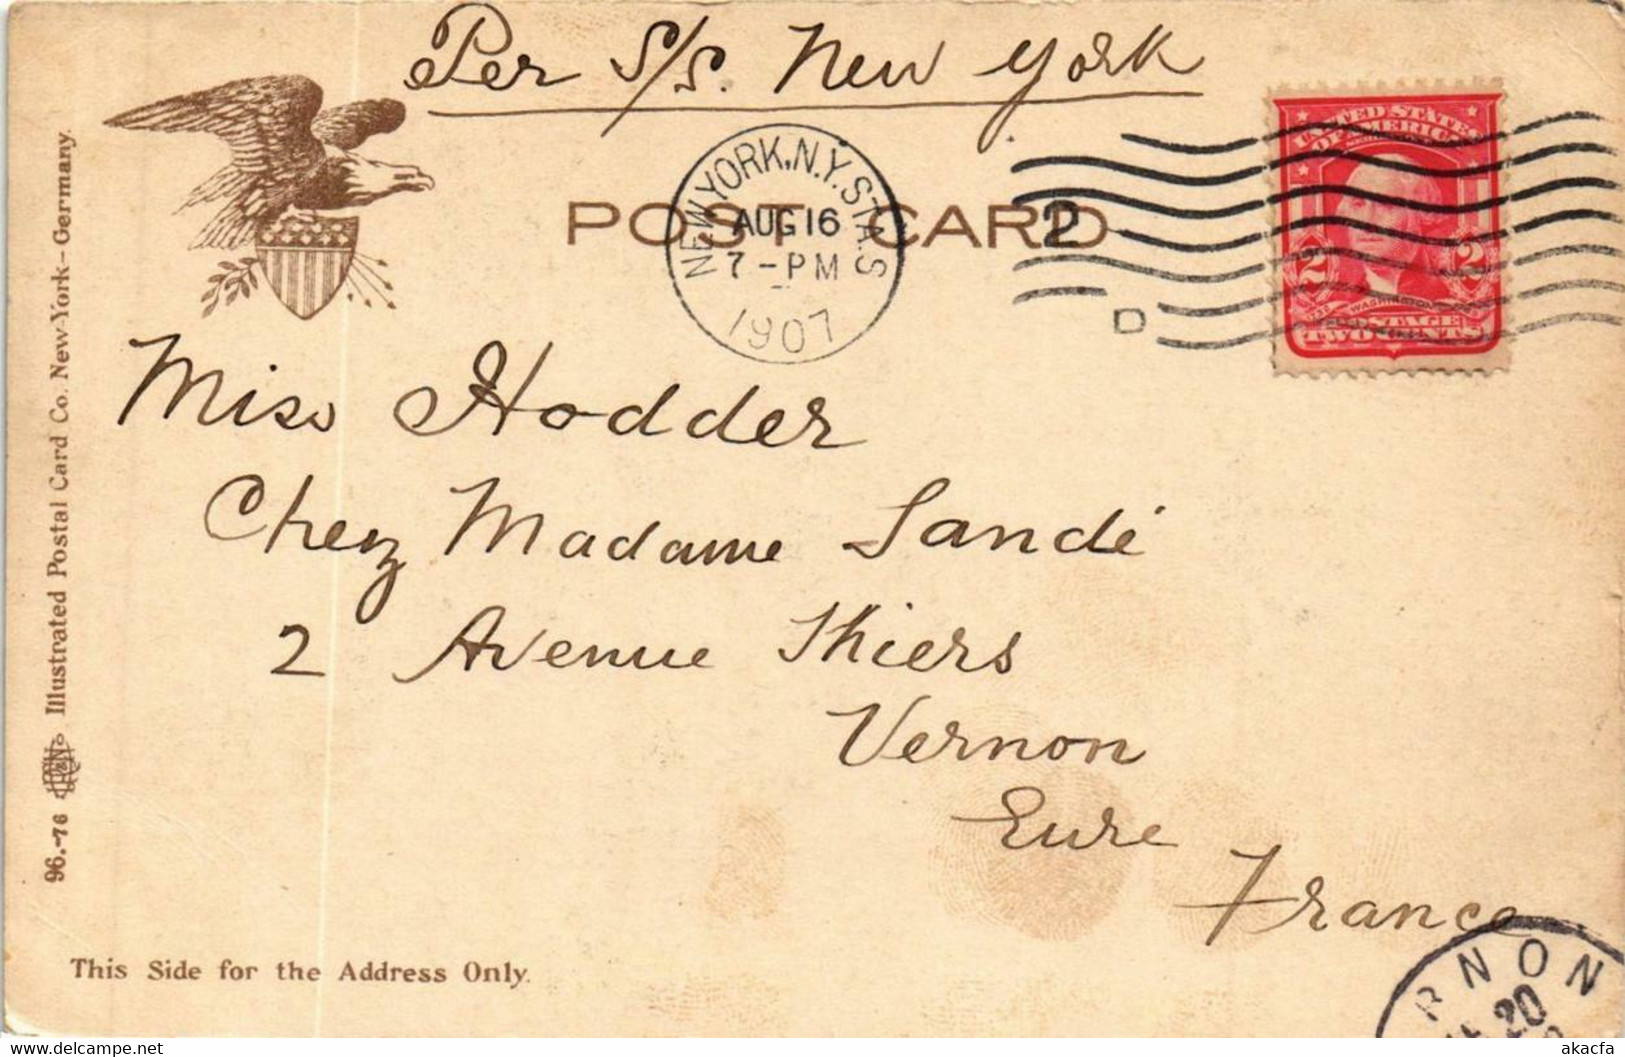 Per S/S. New York
NEW YORK, N.Y. STA. S
AUG 16
7 - PM
1907
2
D
UNITED STATES
OF AMERICA
2 2
WASHINGTON
POSTAGE
TWO CENTS
POST CARD
Miss Hodder
Chez Madame Sandé
2 Avenue Thiers
Vernon
Eure
France
RNON
20
This Side for the Address Only.
96.-76 Illustrated Postal Card Co. New-York-Germany.
akacfa